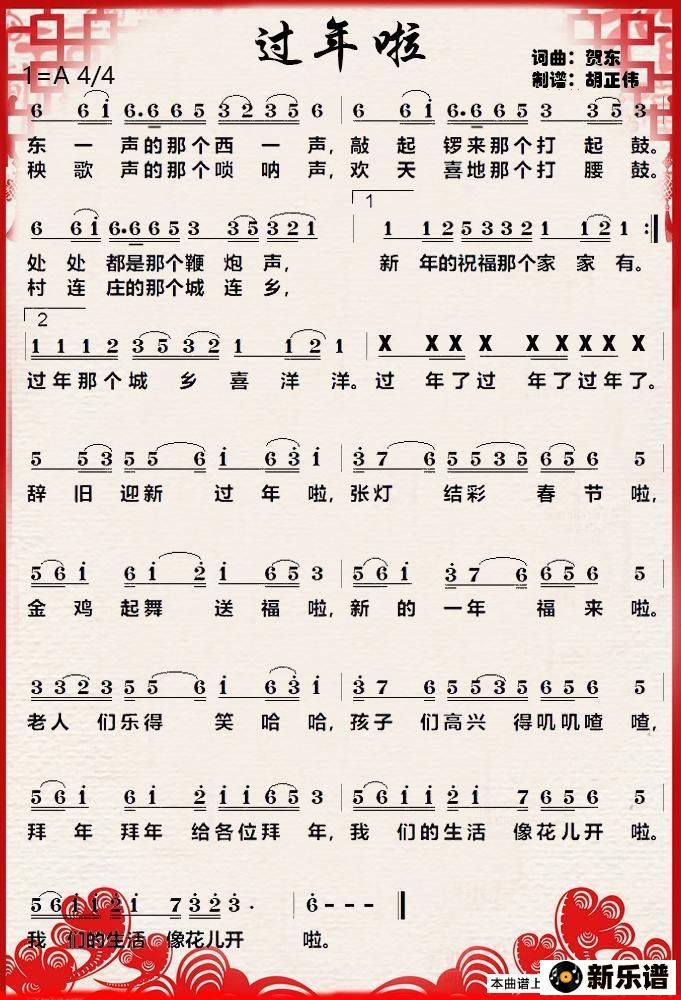 过年啦
词曲：贺东
1=A 4/4
制谱：胡正伟
6 6 i 6.6 6 5 3 2 3 5 6 | 6 6 i 6.6 6 5 3 3 5 3
东一声的那个西一声，敲起锣来那个打起鼓。
秧歌声的那个唢呐声，欢天喜地那个打腰鼓。
1
6 6 i 6.6 6 5 3 3 5 3 2 1 | 1 1 2 5 3 3 2 1 1 2 1 :||
处处都是那个鞭炮声，新年的祝福那个家家有。
村连庄的那个城连乡，
2
1 1 1 2 3 5 3 2 1 1 2 1 | X X X X X X X X X
过年那个城乡喜洋洋。过年了过年了过年了。
5 5 3 5 5 6 i 6 3 i | 3 7 6 5 5 3 5 6 5 6 5
辞旧迎新过年啦，张灯结彩春节啦，
5 6 i 6 i 2 i 6 5 3 | 5 6 i 3 7 6 6 5 6 5
金鸡起舞送福啦，新的一年福来啦。
3 3 2 3 5 5 6 i 6 3 i | 3 7 6 5 5 3 5 6 5 6 5
老人们乐得笑哈哈，孩子们高兴得叽叽喳喳，
5 6 i 6 i 2 i i 6 5 3 | 5 6 i i 2 i 7 6 5 6 5
拜年拜年给各位拜年，我们的生活像花儿开啦。
5 6 i i 2 i 7 3 2 3 . | 6 - - - ||
我们的生活像花儿开啦。
本曲谱上
新乐谱